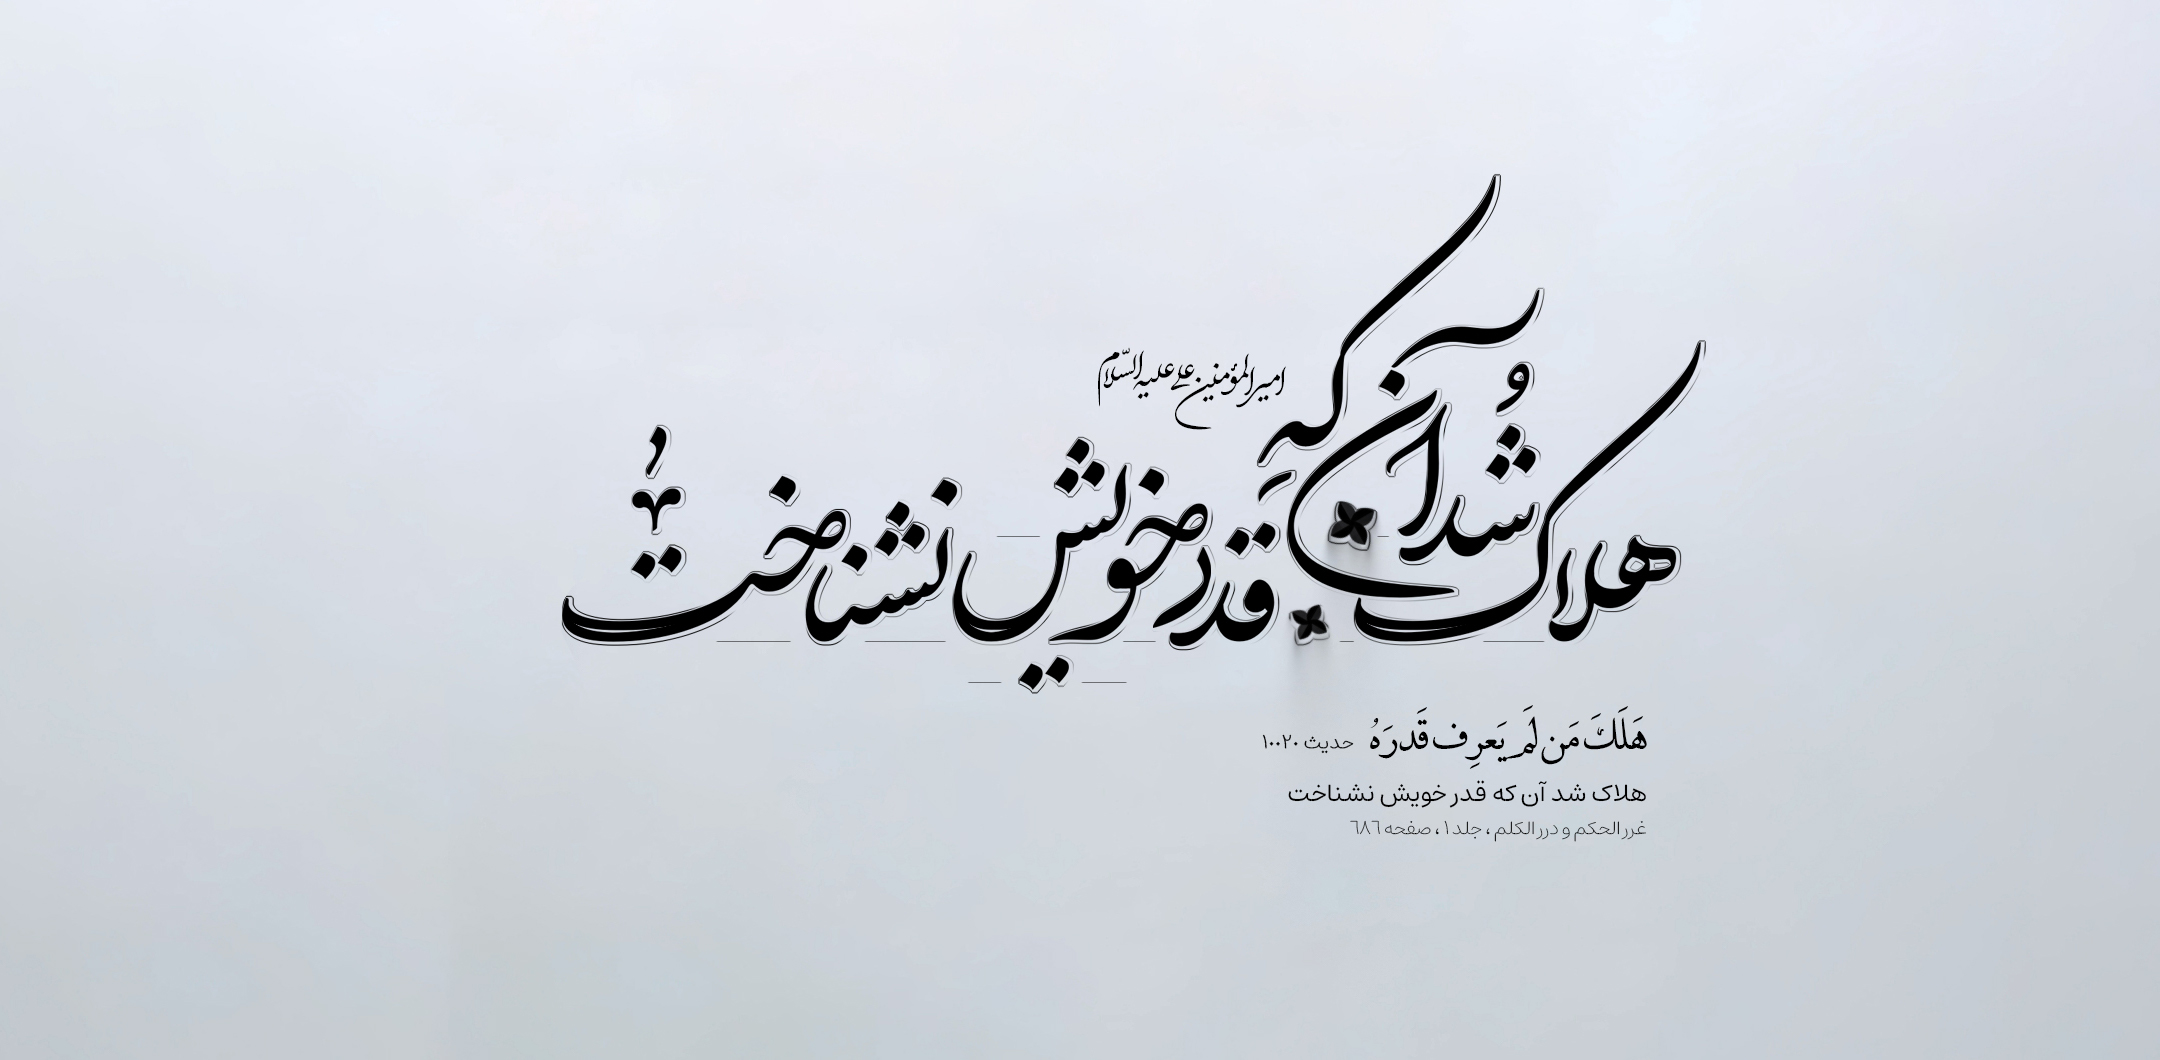 امیرالمؤمنین علی علیه السّلام
هلاک شُد آن کهِ
قدر خویش نشناخت
هَلَكَ مَن لَم يَعرِف قَدرَهُ حدیث ۱۰۰۲۰
هلاک شد آن که قدر خویش نشناخت
غرر الحکم و درر الکلم ، جلد ۱ ، صفحه ٦٨٦